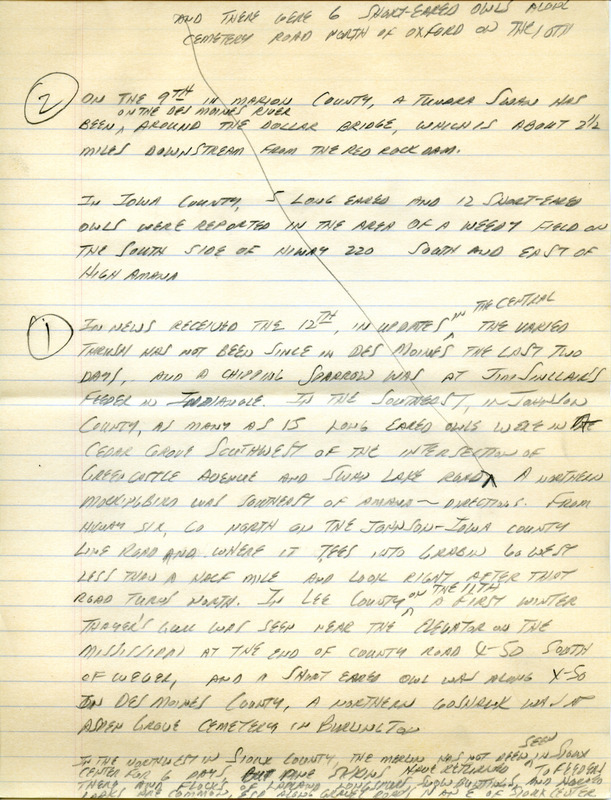 AND THERE WERE 6 SHORT-EARED OWLS ALONG
CEMETERY ROAD NORTH OF OXFORD ON THE 10TH
② ON THE 9TH IN MARION COUNTY, A TUNDRA SWAN HAS
ON THE DES MOINES RIVER
BEEN ^ AROUND THE DOLLAR BRIDGE, WHICH IS ABOUT 2½
MILES DOWNSTREAM FROM THE RED ROCK DAM.
IN IOWA COUNTY, 5 LONG EARED AND 12 SHORT-EARED
OWLS WERE REPORTED IN THE AREA OF A WEEDY FIELD ON
THE SOUTH SIDE OF HIWAY 220 SOUTH AND EAST OF
HIGH AMANA
① IN NEWS RECEIVED THE 12TH, IN UPDATES ^ IN THE CENTRAL THE VARIED
THRUSH HAS NOT BEEN SINCE IN DES MOINES THE LAST TWO
DAYS, AND A CHIPPING SPARROW WAS AT JIM SINCLAIR'S
FEEDER IN INDIANOLE. IN THE SOUTHEAST, IN JOHNSON
COUNTY, AS MANY AS 15 LONG EARED OWLS WERE IN THE
CEDAR GROVE SOUTHWEST OF THE INTERSECTION OF
GREENCASTLE AVENUE AND SWAN LAKE ROAD ^ A NORTHERN
MOCKINGBIRD WAS SOUTHEAST OF AMANA - DIRECTIONS. FROM
HIWAY SIX, GO NORTH ON THE JOHNSON-IOWA COUNTY
LINE ROAD AND WHERE IT TEES INTO GO WEST
LESS THAN A HALF MILE AND LOOK RIGHT AFTER THAT
ROAD TURNS NORTH. IN LEE COUNTY ^ ON THE 11TH A FIRST WINTER
THAYER'S GULL WAS SEEN NEAR THE ELEVATOR ON THE
MISSISSIPPI AT THE END OF COUNTY ROAD X-50 SOUTH
OF WEVER, AND A SHORT EARED OWL WAS ALONG X-50
IN DES MOINES COUNTY, A NORTHERN GOSHAWK WAS AT
ASPEN GROVE CEMETERY IN BURLINGTON
IN THE NORTHWEST IN SIOUX COUNTY, THE MERLIN HAS NOT BEEN SEEN IN SIOUX
CENTER FOR 6 DAYS BUT PINE SISKINS HAVE RETURNED TO FEEDERS
THERE AND FLOCKS OF LAPLAND LONGSPURS, SNOW BUNTINGS, AND HORNED
LARKS ARE COMMON, ALONG GRAVEL ROADS, N AND E OF SIOUX CENTER